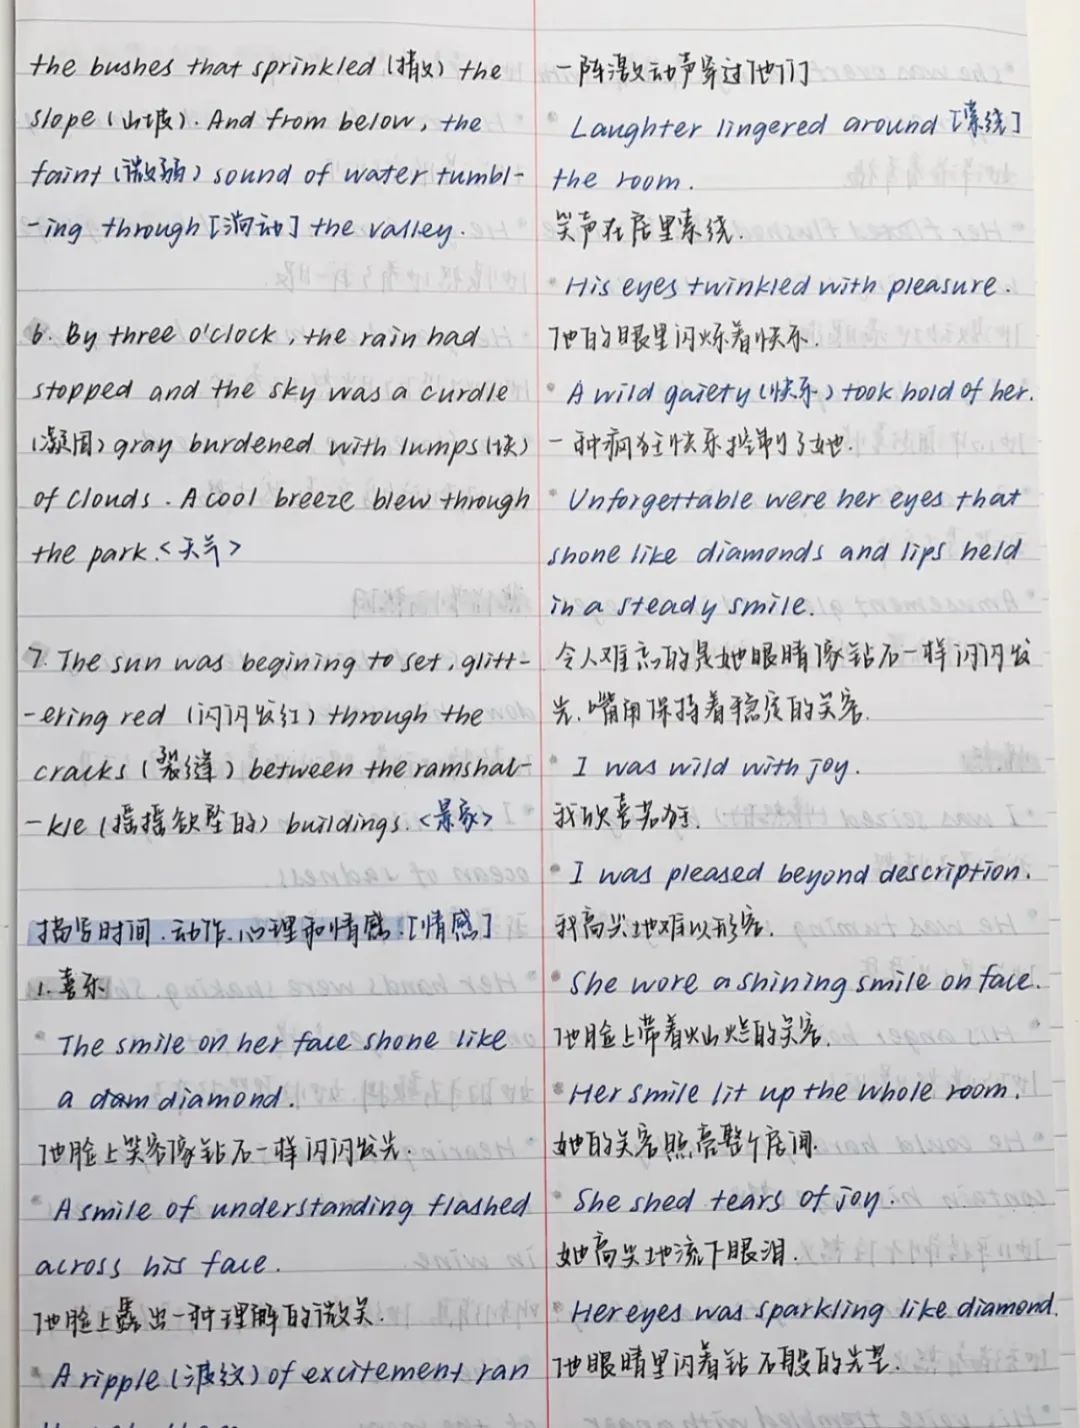 the bushes that sprinkled (撒) the
slope (山坡). And from below, the
faint (微弱) sound of water tumbl-
-ing through [淌动] the valley.
6. By three o'clock, the rain had
stopped and the sky was a curdle
(凝固) gray burdened with lumps (块)
of clouds. A cool breeze blew through
the park.<天气>
7. The sun was begining to set, glitt-
-ering red (闪闪发红) through the
cracks (裂缝) between the ramshal-
-kle (摇摇欲坠的) buildings.<景象>
描写时间.动作.心理和情感.[情感]
1.喜乐
The smile on her face shone like
a diamond.
他脸上笑容像钻石一样闪闪发光.
• A smile of understanding flashed
across his face.
他脸上露出一种理解的微笑.
• A ripple (波纹) of excitement ran
一阵激动声穿过他们
• Laughter lingered around [萦绕]
the room.
笑声在房里萦绕.
• His eyes twinkled with pleasure.
他的眼里闪烁着快乐.
• A wild gaiety (快乐) took hold of her.
一种疯狂快乐控制了她.
• Unforgettable were her eyes that
shone like diamonds and lips held
in a steady smile.
令人难忘的是她眼睛像钻石一样闪闪发
光.嘴角保持着稳定的笑容.
• I was wild with joy.
我欣喜若狂.
• I was pleased beyond description.
我高兴地难以形容.
• She wore a shining smile on face.
他脸上带着灿烂的笑容.
• Her smile lit up the whole room.
她的笑容照亮整个房间.
• She shed tears of joy.
她高兴地流下眼泪.
• Her eyes was sparkling like diamond.
他眼睛里闪着钻石般的光芒.